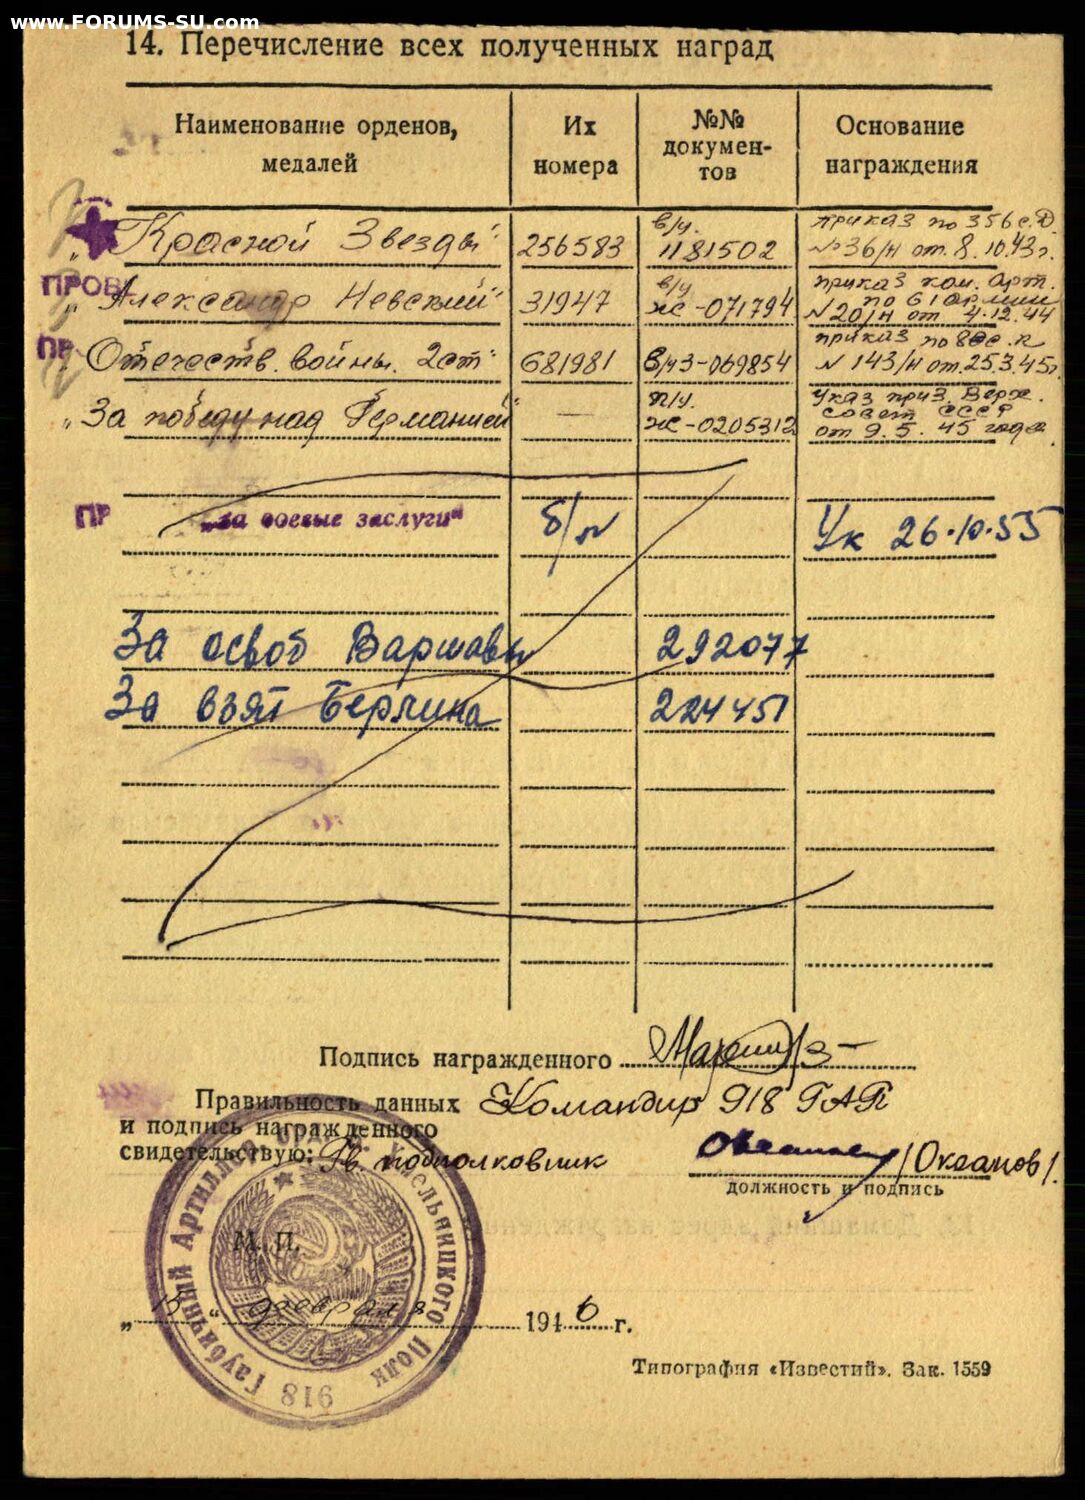 www.FORUMS-SU.com
14. Перечисление всех полученных наград
Наименование орденов, медалей
Их номера
№№ докумен-тов
Основание награждения
„Красной Звезды" 256583 в/у. 1181502 приказ по 356 с.д. №36/н от 8.10.43г.
ПРОВ
„Александр Невский" 31947 в/у ж-071794 приказ ком. Арт. по 61 армии №20/н от 4.12.44
ПР
„Отечеств. войны. 2ст" 681981 в/уЗ-069854 приказ по N 143/н от 25.3.45г.
„За победу над Германией" — п/у. ж-0205312 Указ през. Верх. совет СССР от 9.5.45 года
ПР
„За боевые заслуги" б/н Ук 26.10.55
За освоб Варшавы 292077
За взят Берлина 224451
Подпись награжденного
Правильность данных Командир 918 ГАП
и подпись награжденного
свидетельствую: Гв. подполковник /Океанов/.
должность и подпись
М. П.
918 Гаубичный Артиллер. орден. Хмельницкого Полк
„15" февраля 1946 г.
Типография «Известий». Зак. 1559